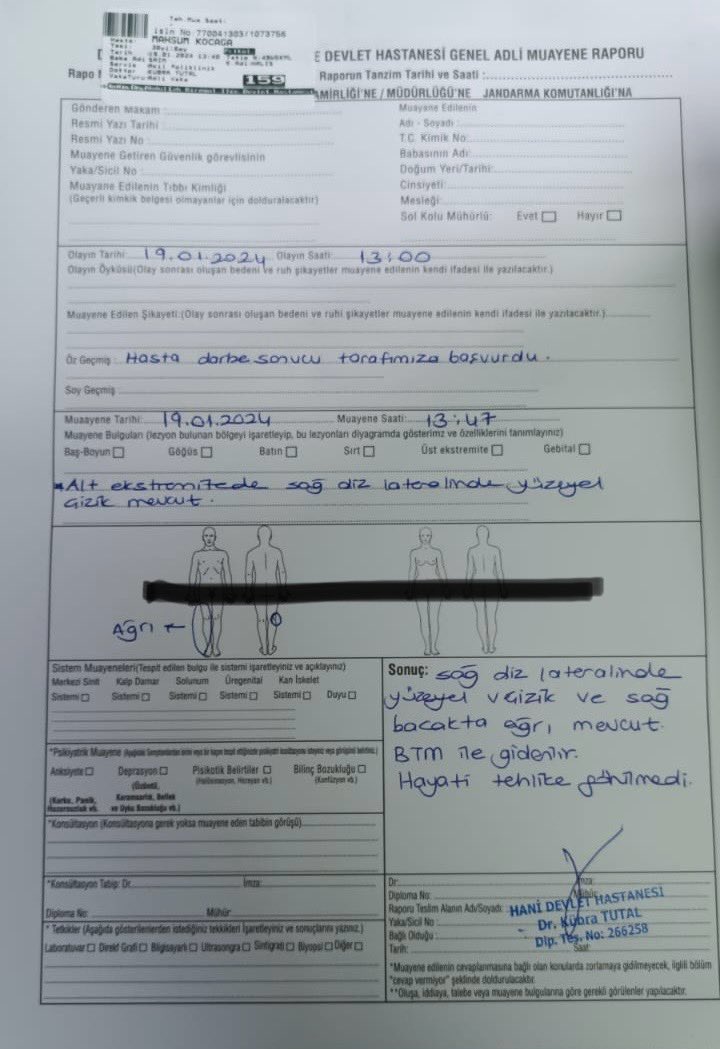 Teh.Mua Saati:
isin No:770041303/1073756
MAHSUM KOCAGA
159
E DEVLET HASTANESİ GENEL ADLİ MUAYENE RAPORU
Rapo
Raporun Tanzim Tarihi ve Saati :
AMİRLİĞİ'NE / MÜDÜRLÜĞÜ'NE JANDARMA KOMUTANLIĞI'NA
Gönderen Makam :
Resmi Yazı Tarihi :
Resmi Yazı No :
Muayene Getiren Güvenlik görevlisinin
Yaka/Sicil No :
Muayane Edilenin Tıbbı Kimliği
(Geçerli kimkik belgesi olmayanlar için dolduralacaktır)
Muayane Edilenin
Adı - Soyadı :
T.C. Kimik No:
Babasının Adı:
Doğum Yeri/Tarihi:
Cinsiyeti:
Mesleği:
Sol Kolu Mühürlü: Evet Hayır
Olayın Tarihi: 19.01.2024 Olayın Saati: 13:00
Olayın Öyküsü(Olay sonrası oluşan bedeni ve ruh şikayetler muayene edilenin kendi ifadesi ile yazılacaktır.)
Muayene Edilen Şikayeti:(Olay sonrası oluşan bedeni ve ruhi şikayetler muayene edilenin kendi ifadesi ile yazılacaktır.)
Öz Geçmiş : Hasta darbe sonucu tarafımıza başvurdu.
Soy Geçmiş
Muaayene Tarihi: 19.01.2024 Muayene Saati: 13:47
Muayene Bulguları (lezyon bulunan bölgeyi işaretleyip, bu lezyonları diyagramda gösterimz ve özelliklerini tanımlayınız)
Baş-Boyun Göğüs Batın Sırt Üst ekstremite Gebital
*Alt ekstremitede sağ diz lateralinde yüzeyel
çizik mevcut.
Ağrı ←
Sistem Muayeneleri(Tespit edilen bulgu ile sistemi işaretleyiniz ve açıklayınız)
Merkezi Sinit Kalp Damar Solunum Üregenital Kan İskelet
Sistemi Sistemi Sistemi Sistemi Sistemi Duyu
*Psikiyatrik Muayene
Anksiyete Depresyon Psikotik Belirtiler Bilinç Bozukluğu
(Korku, Panik,
Huzursuzluk vb.
*Konsültasyon (Konsültasyona gerek yoksa muayene eden tabibin görüşü)
*Konsültasyon Tabip: Dr. İmza:
Diploma No: Mühür
* Tetkikler (Aşağıda gösterilenlerden istediğiniz tekkikleri işaretleyiniz ve sonuçlarını yazınız.)
Laboratuvar Direkt Grafi Bilgisayarlı Ultrasongra Sintigrafi Biyopsi Diğer
Sonuç: sağ diz lateralinde
yüzeyel çizik ve sağ
bacakta ağrı mevcut.
BTM ile giderilir.
Hayati tehlike görülmedi.
Dr: İmza:
Diploma No: Mühür
Raporu Teslim Alanın Adı/Soyadı:
Yaka/Sicil No :
Bağlı Olduğu :
Tarih: Saat:
HANİ DEVLET HASTANESİ
Dr. Kübra TUTAL
Dip. Tes. No: 266258
*Muayene edilenin cevaplanmasına bağlı olan konularda zorlamaya gidilmeyecek, ilgili bölüm
"cevap vermiyor" şeklinde doldurulacaktır.
**Oluşa, iddiaya, talebe veya muayene bulgularına göre gerekli görülenler yapılacaktır.